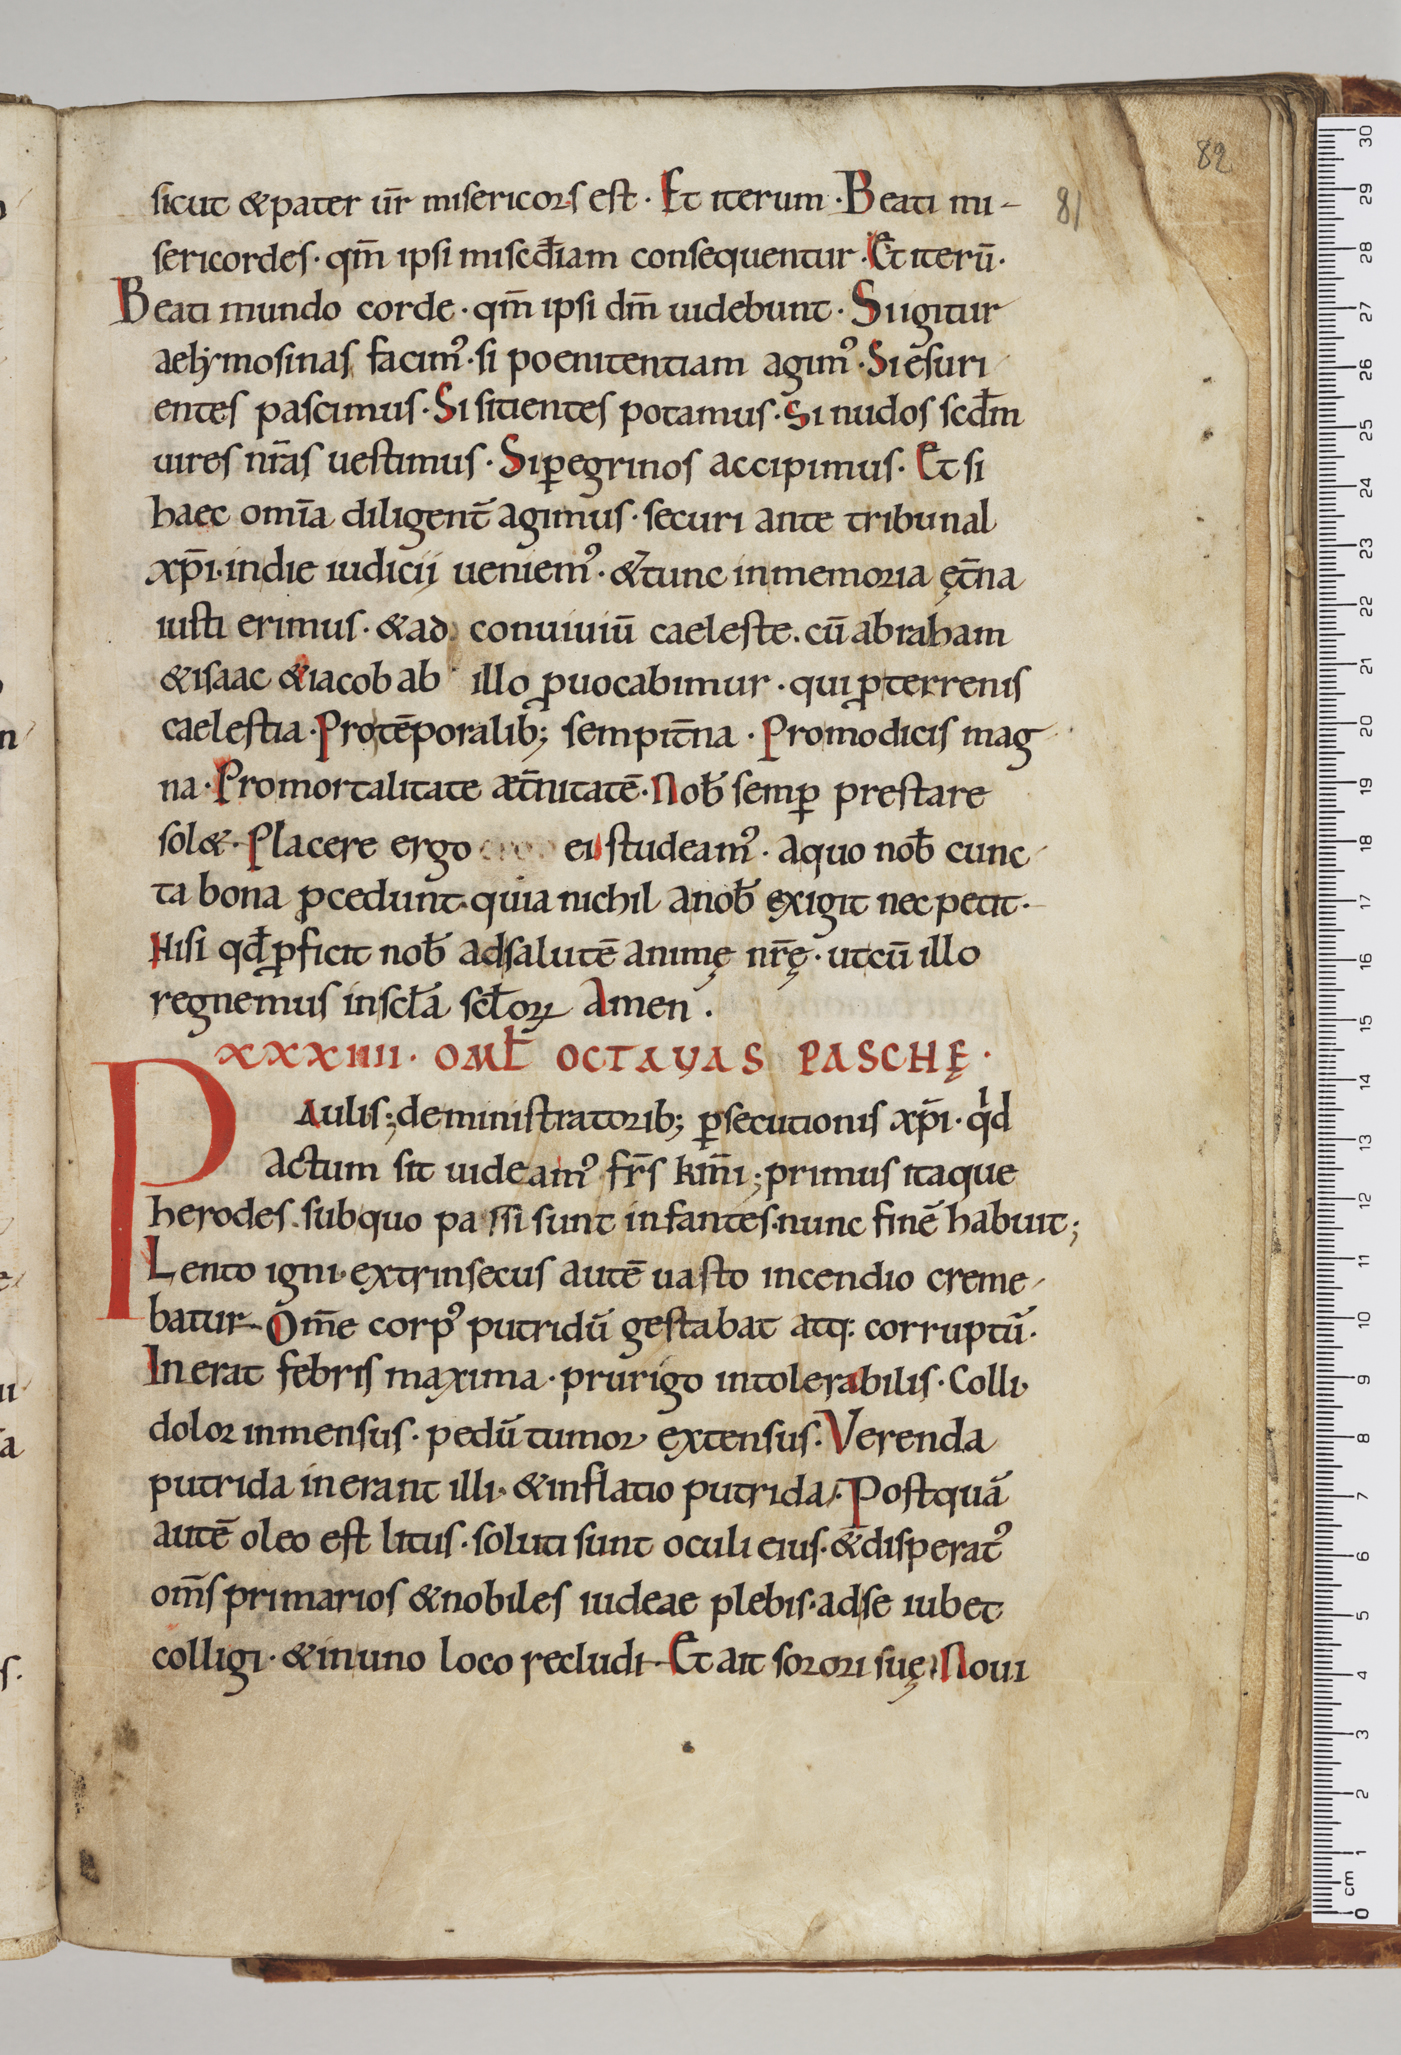 82
81
sicut & pater ur̄ misericors est · Et iterum · Beati mi-
sericordes · qm̄ ipsi misc̄diam consequentur · Et iterū ·
Beati mundo corde · qm̄ ipsi dm̄ uidebunt · Si igitur
aelymosinas facim᾿ · si poenitentiam agim᾿ · Si esuri
entes pascimus · Si sitientes potamus · Si nudos scd̄m
uires nr̄as uestimus · Si ꝑegrinos accipimus · Et si
haec omīa diligent̄ agimus · securi ante tribunal
xp̄i · in die iudicij ueniem᾿ · & tunc in memoria ęt̄na
iusti erimus · & ad conuiuiū caeleste · cū abraham
& isaac & iacob ab illo ꝓuocabimur · qui ꝓ terrenis
caelestia · Pro tēporalib; sempit̄na · Pro modicis mag
na · Pro mortalitate æt̄nitatē · Nob̄ semꝑ prestare
sol& · Placere ergo ei studeam᾿ · a quo nob̄ cunc
ta bona ꝓcedunt · quia nichil a nob̄ exigit nec petit ·
Nisi qd̄ ꝓficit nob̄ ad salutē animę nr̄ę · ut cū illo
regnemus in scl̄a scl̄oꝝ Amen .
XXXIIII · OML̄ OCTAVAS PASCHĘ ·
PAulis; de ministratorib; ꝑsecutionis xp̄i · qid
actum sit uideam᾿ fr̄s km̄i; primus itaque
herodes · sub quo passi sunt infantes · nunc finē habuit;
Lento igni · extrinsecus autē uasto incendio creme
batur · Om̄e corp᾿ putridū gestabat atq: corruptū ·
Inerat febris maxima · prurigo intolerabilis · Colli
dolor inmensus · pedū tumor extensus · Verenda
putrida inerant illi · & inflatio putrida · Postquā
autē oleo est litus · soluti sunt oculi eius · & disperat᾿
om̄s primarios & nobiles iudeae plebis · ad se iubet
colligi · & in uno loco recludi · Et ait sorori suę · Noui
30
29
28
27
26
25
24
23
22
21
20
19
18
17
16
15
14
13
12
11
10
9
8
7
6
5
4
3
2
1
cm
0